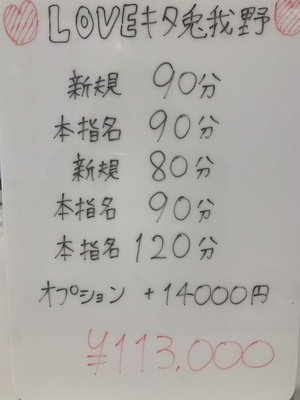 LOVEキタ兎我野
新規 90分
本指名 90分
新規 80分
本指名 90分
本指名 120分
オプション +14000円
¥113,000